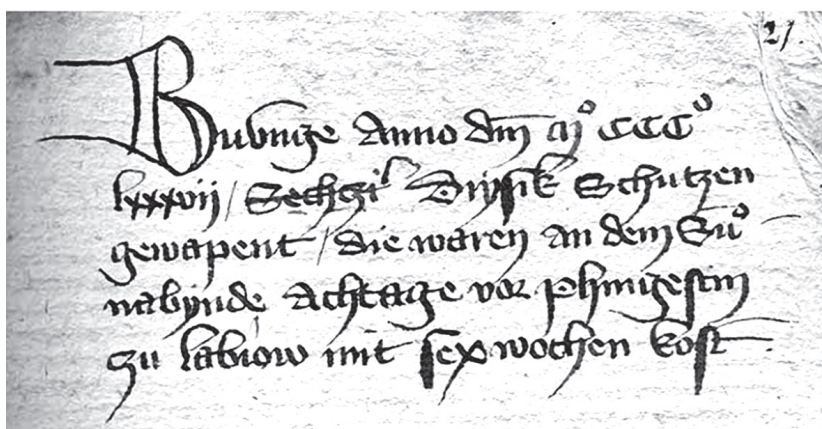 Anno dm mº CCCº
lxxxvij / Sechczi Drysik Schutzen
gewapent / die waren an dem Suº
nabynde Achtage vor phingestin
zu labiow mit sex wochen kost
21.